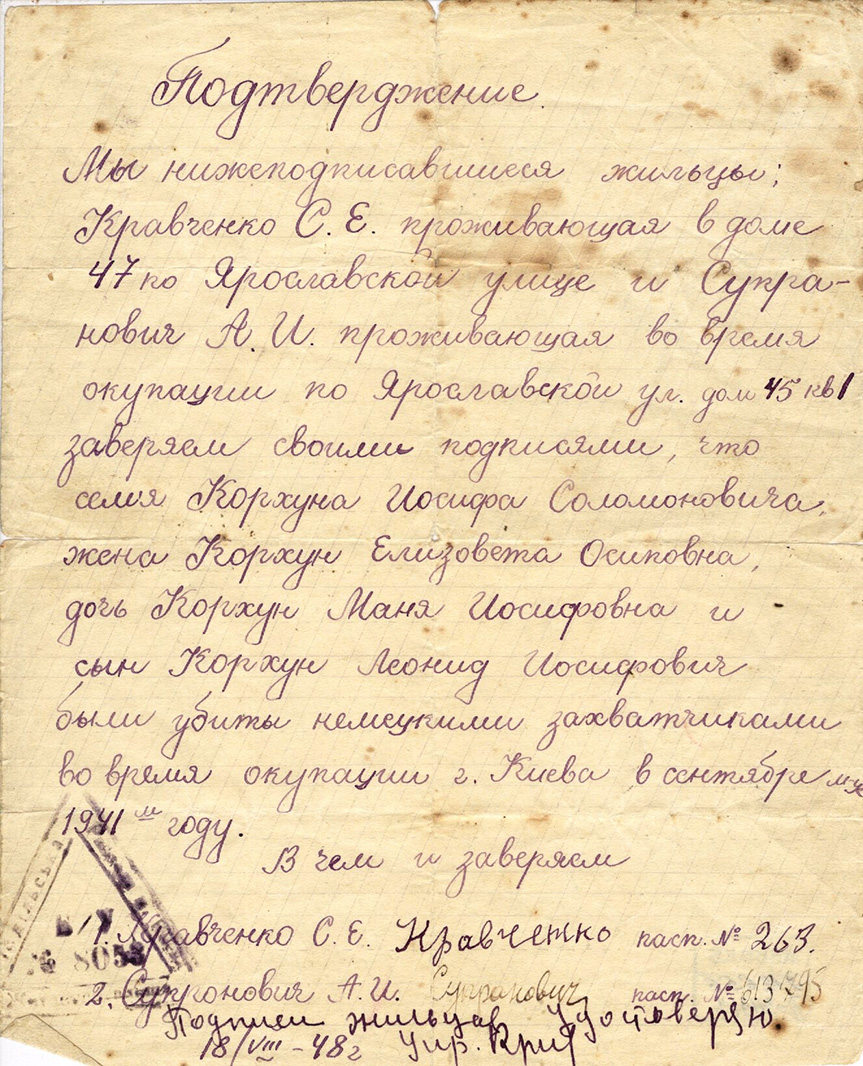 Подтверждение.
Мы нижеподписавшиеся жильцы;
Кравченко С. Е. проживающая в доме
47 по Ярославской улице и Супра-
нович А. И. проживающая во время
окупации по Ярославской ул. дом 45 кв 1
заверяем своими подписями, что
семя Корхуна Иосифа Соломоновича,
жена Корхун Елизовета Осиповна,
дочь Корхун Маня Иосифовна и
сын Корхун Леонид Иосифович
были убиты немецкими захватчиками
во время окупации г. Киева в сентябре м-це
1941 м году.
В чем и заверяем
1. Кравченко С. Е. Кравченко пасп. № 263.
2. Супронович А. И. Супранович пасп. № 613795
Подписи жильцов удостоверяю
18/VIII-48г Упр.
№ 8053